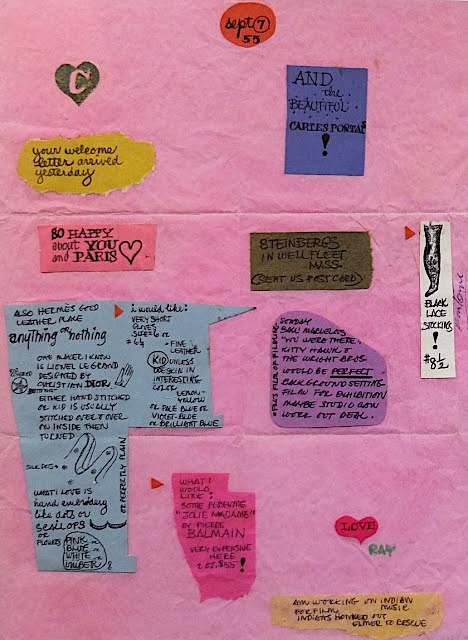 sept 7
55
C
AND
the
BEAUTIFUL
CARTES POSTALS
!
your welcome
letter arrived
yesterday
SO HAPPY
about YOU
and PARIS
STEINBERGS
IN WELLFLEET
MASS.
(SENT US POSTCARD)
BLACK
LACE
STOCKINGS
!
#8½
ALSO HERMES GOLD
LEATHER PLACE
or
anything nothing
ONE MAKER I KNOW
IS LIONEL LE GRAND
DESIGNED BY
CHRISTIAN DIOR
EITHER HAND STITCHED
OR KID IS USUALLY
STITCHED OVER & OVER
ON INSIDE THEN
TURNED
OR PERFECTLY PLAIN
WHAT I LOVE IS
hand embroidery
like dots or
scallops
or
FLOWERS
PINK
BLUE
WHITE
i would like:
VERY SHORT
GLOVES
SIZE 6 or
6½
FINE
LEATHER
KID UNLESS
DOESKIN IN
INTERESTING
COLOR
LEMON-
YELLOW
OR PALE BLUE OR
VIOLET-BLUE
OR BRILLIANT BLUE
SUNDAY
SAW MARVELOUS
"YOU WERE THERE"
KITTY HAWK &
THE WRIGHT BROS.
WOULD BE PERFECT
BACKGROUND SETTING
FILM FOR EXHIBITION
MAYBE STUDIO CAN
WORK OUT DEAL.
WHAT I
WOULD
LIKE:
SOME PERFUME
"JOLIE MADAME"
BY PIERRE
BALMAIN
VERY EXPENSIVE
HERE
2 oz. $55
!
LOVE
RAY
AM WORKING ON INDIAN
MUSIC
FOR FILM
ELMER TO RESCUE